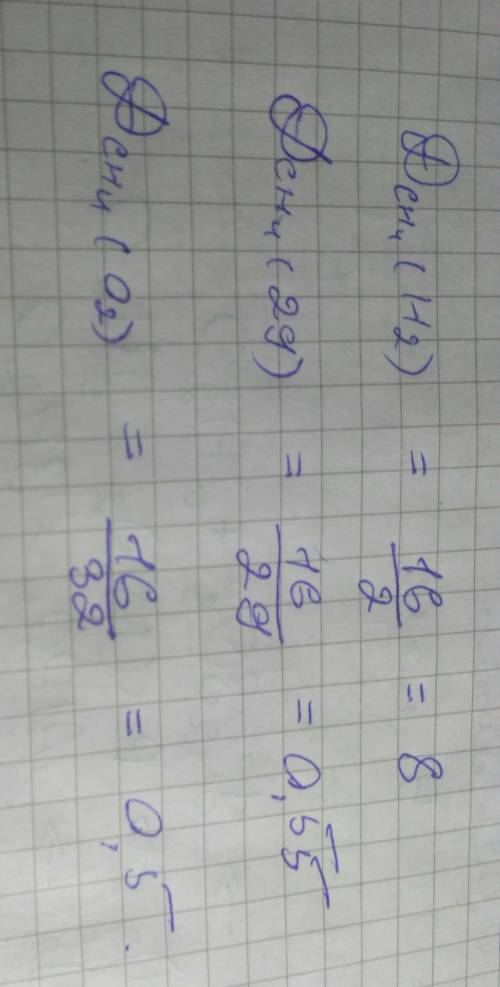 D CH₄ (H₂) = 16/2 = 8
D CH₄ (29) = 16/29 = 0,55
D CH₄ (O₂) = 16/32 = 0,5.